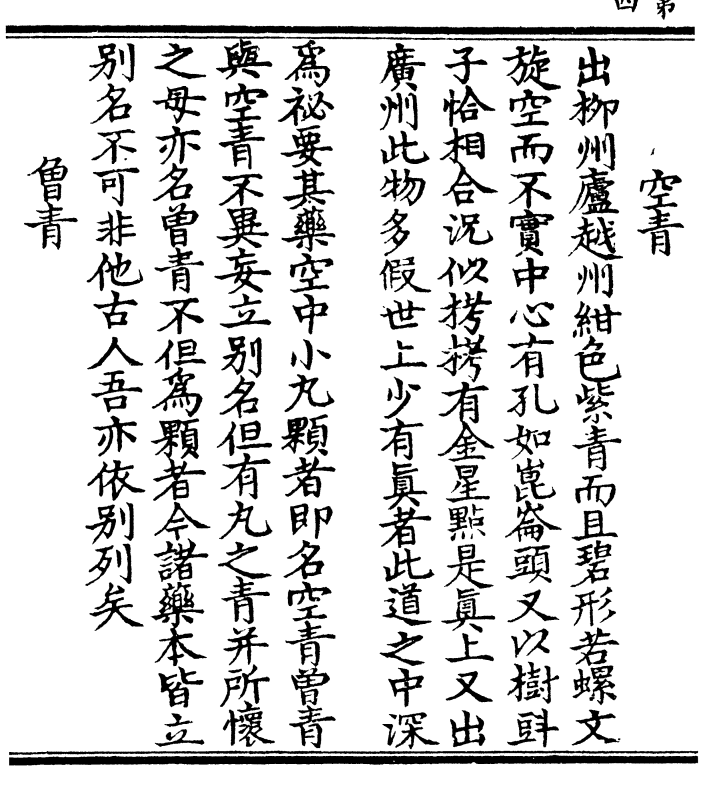 第
四
空青
出柳州廬越州紺色紫青而且碧形若螺文
旋空而不實中心有孔如崑崙頭又以樹㪷
子恰相合況似栲栲有金星點是眞上又出
廣州此物多假世上少有眞者此道之中深
爲祕要其藥空中小丸顆者即名空青曾青
與空青不異妄立别名但有丸之青并所懷
之母亦名曾青不但爲顆者今諸藥本皆立
别名不可非他古人吾亦依别列矣
曾青